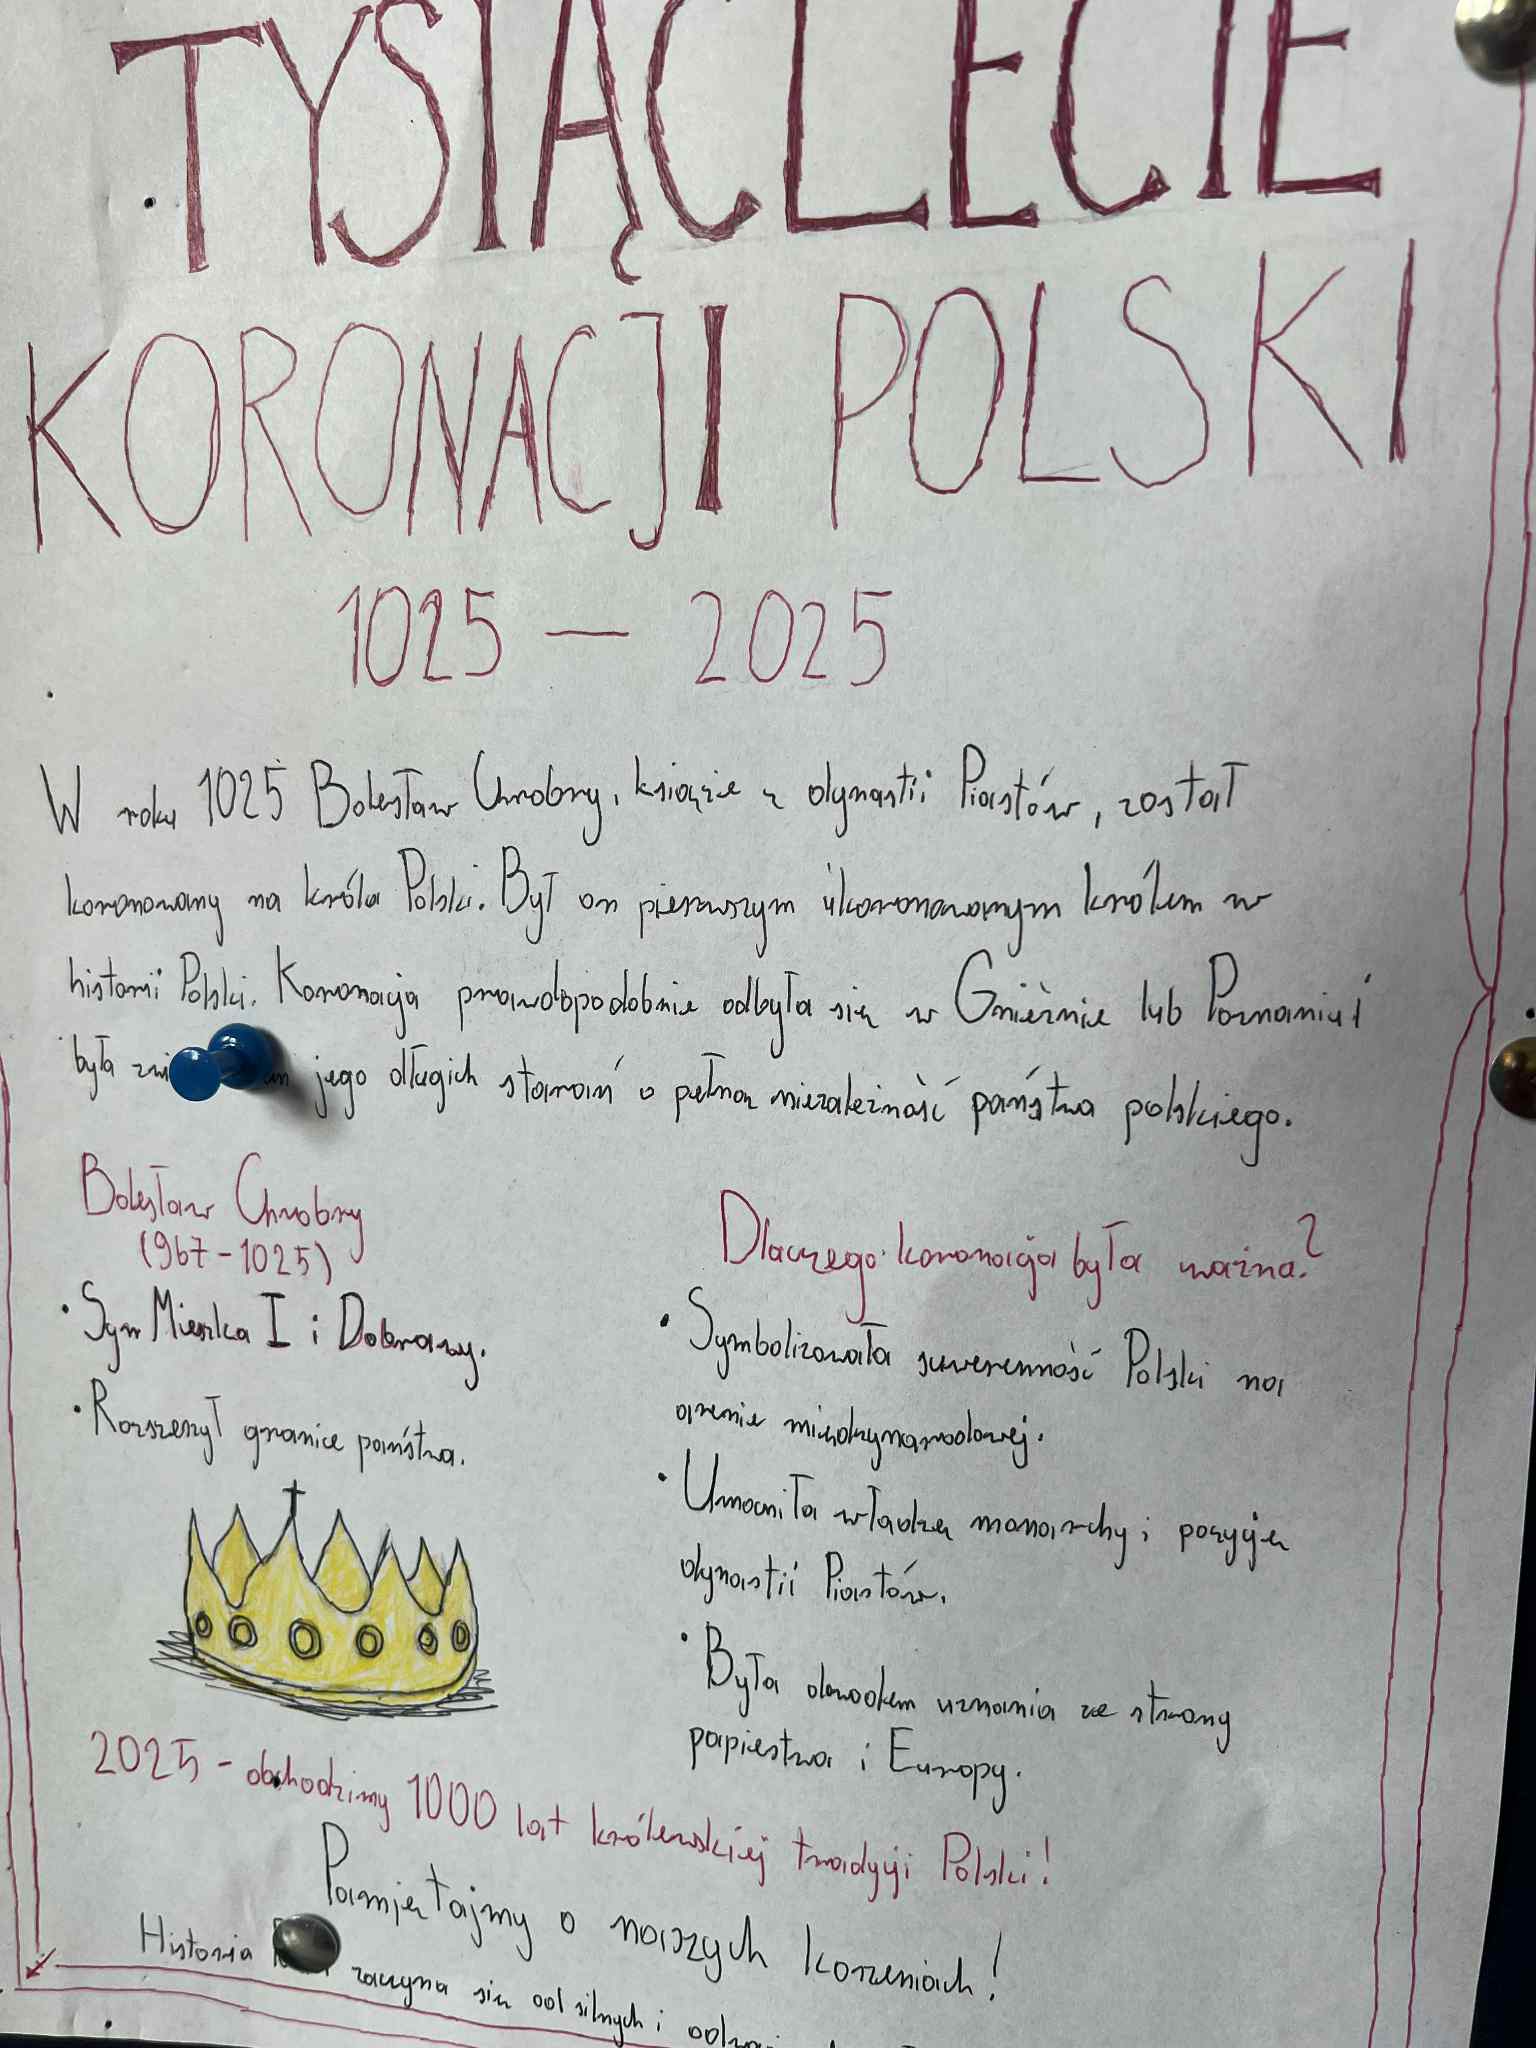 TYSIĄCLECIE
KORONACJI POLSKI
1025 — 2025
W roku 1025 Bolesław Chrobry, książę z dynastii Piastów, został
koronowany na króla Polski. Był on pierwszym ukoronowanym królem w
historii Polski. Koronacja prawdopodobnie odbyła się w Gnieźnie lub Poznaniu i
była jego długich starań o pełną niezależność państwa polskiego.
Bolesław Chrobry
(967-1025)
• Syn Mieszka I i Dobrawy.
• Rozszerzył granice państwa.
Dlaczego koronacja była ważna?
• Symbolizowała suwerenność Polski na
arenie międzynarodowej.
• Umocniła władzę monarchy i pozycję
dynastii Piastów.
• Była dowodem uznania ze strony
papiestwa i Europy.
2025 - obchodzimy 1000 lat królewskiej tradycji Polski!
Pamiętajmy o naszych korzeniach!
Historia zaczyna się od silnych i